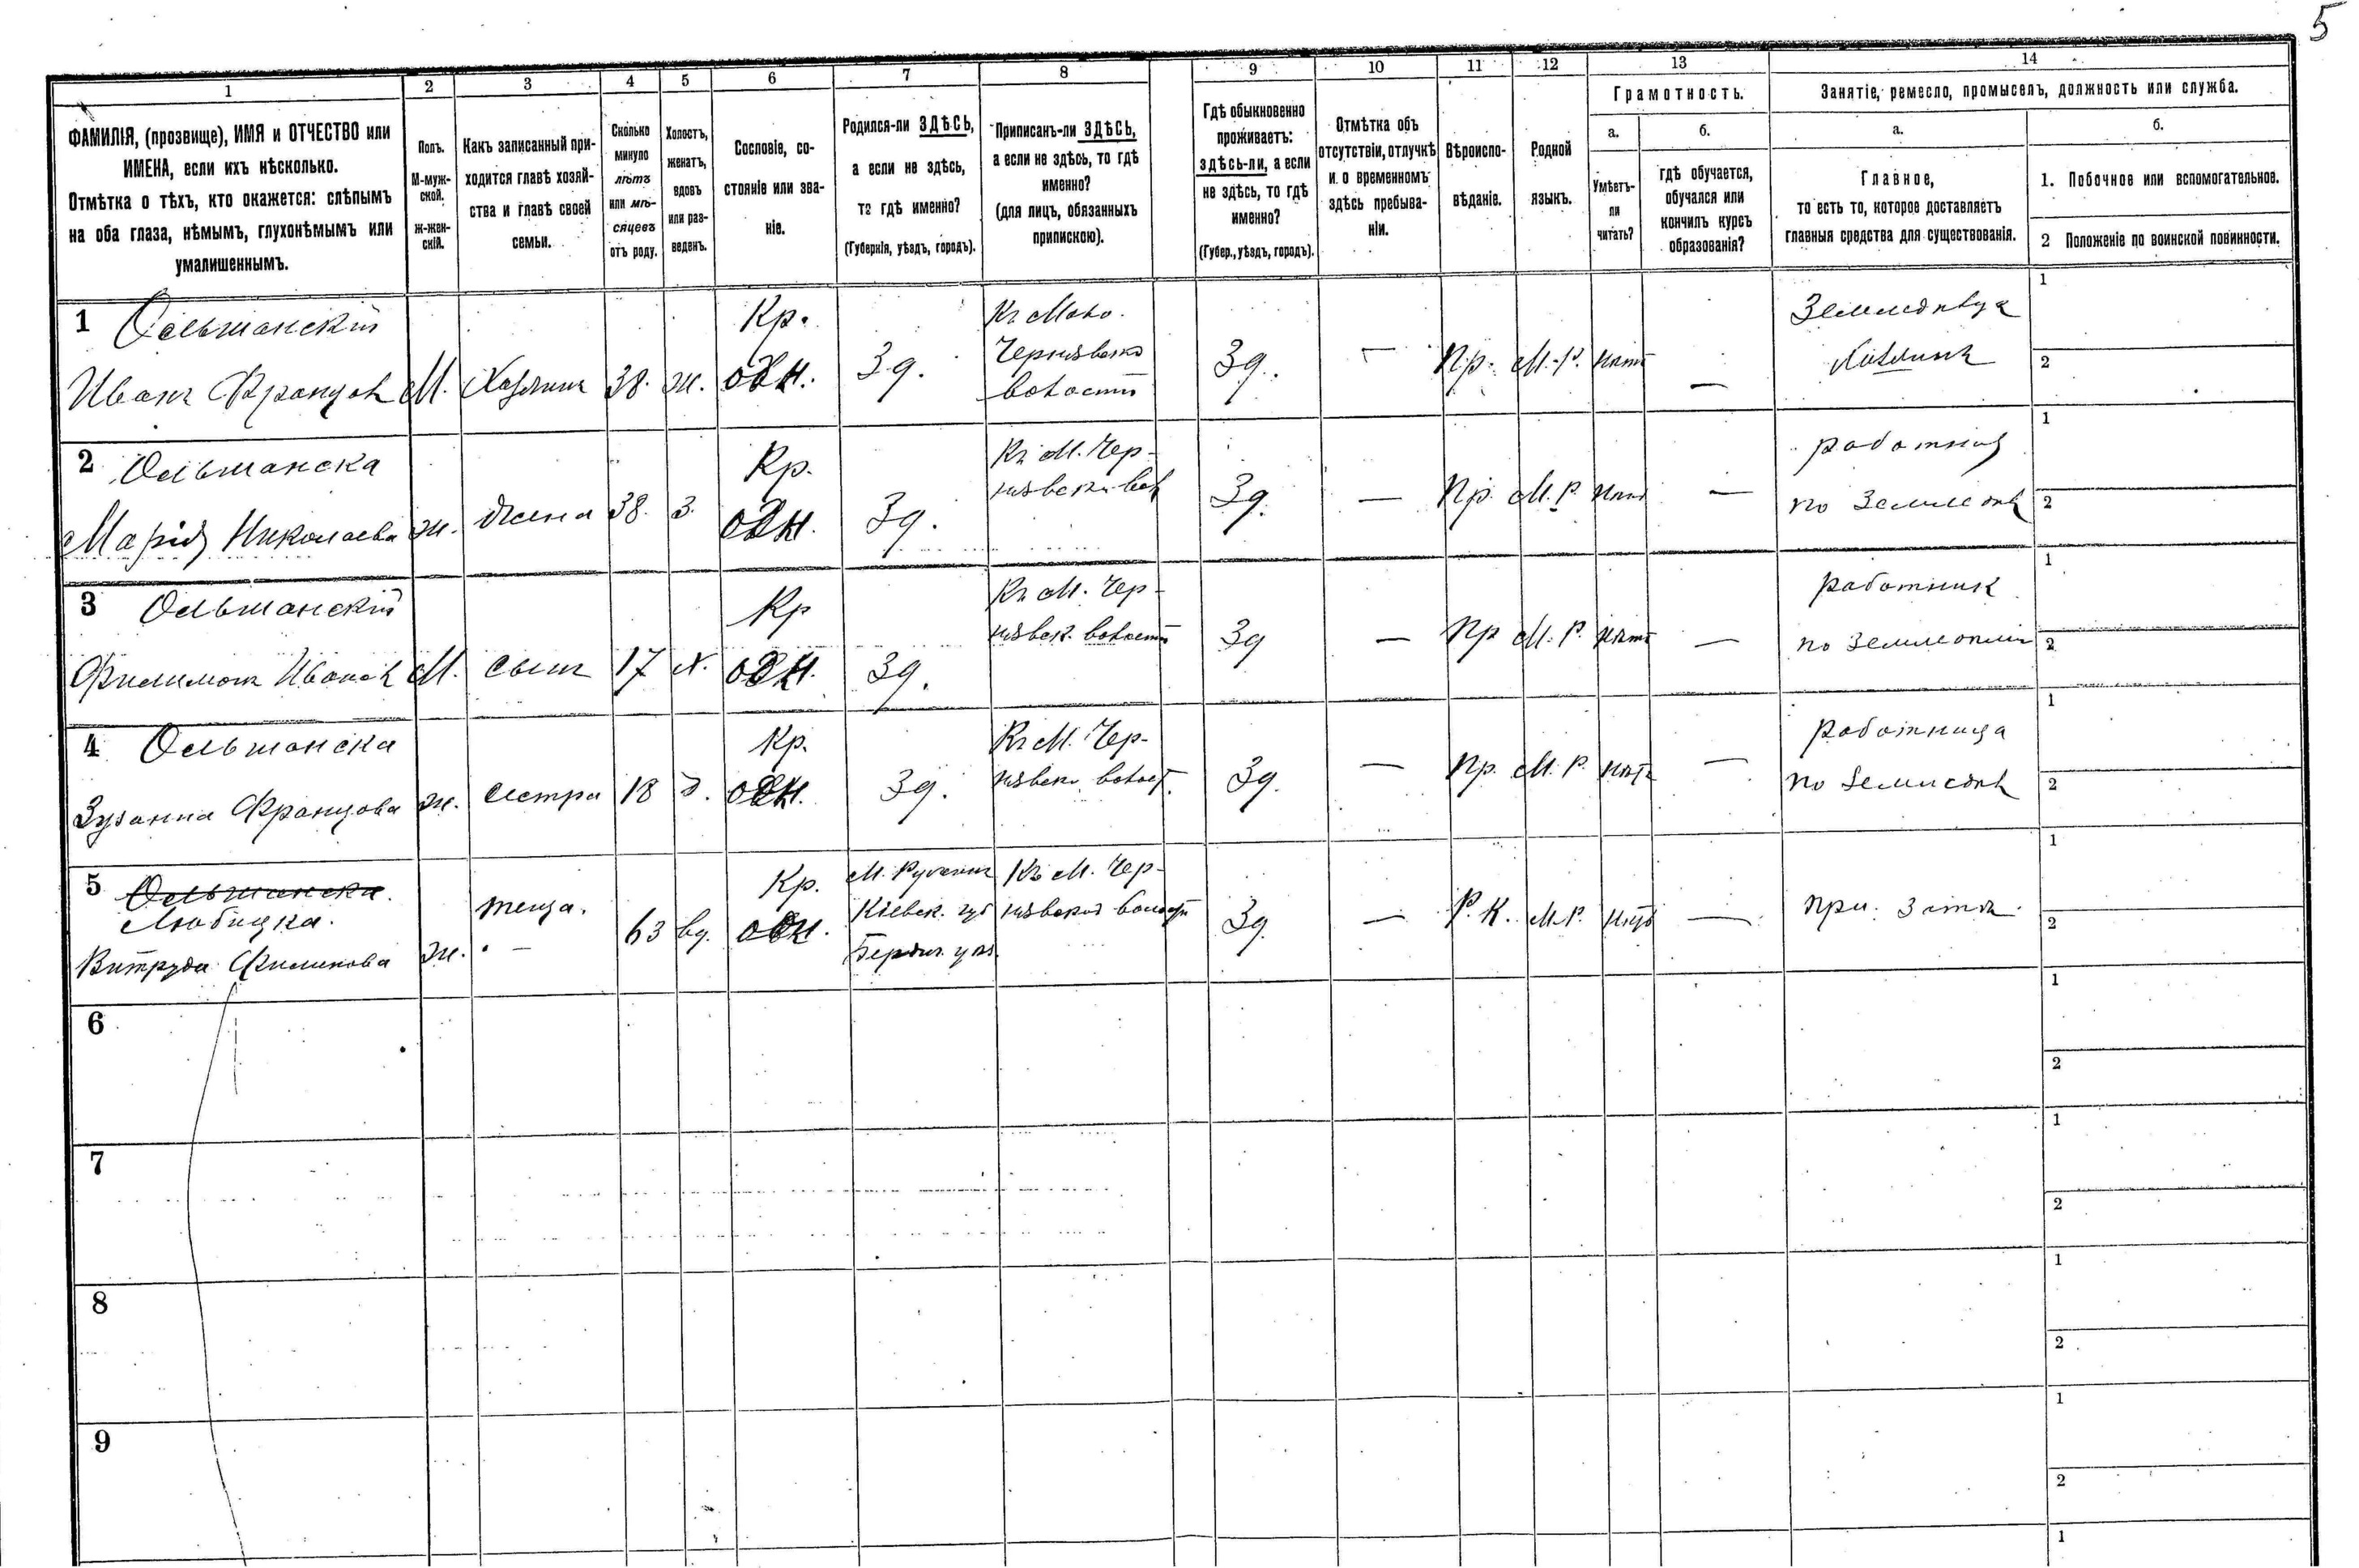 5
1 2 3 4 5 6 7 8 9 10 11 12 13 14
ФАМИЛІЯ, (прозвище), ИМЯ и ОТЧЕСТВО или
ИМЕНА, если ихъ нѣсколько.
Отмѣтка о тѣхъ, кто окажется: слѣпымъ
на оба глаза, нѣмымъ, глухонѣмымъ или
умалишеннымъ.
Полъ.
М-муж-
ской.
ж-жен-
скій.
Какъ записанный при-
ходится главѣ хозяй-
ства и главѣ своей
семьи.
Сколько
минуло
лѣтъ
или мѣ-
сяцевъ
отъ роду.
Холостъ,
женатъ,
вдовъ
или раз-
веденъ.
Сословіе, со-
стояніе или зва-
ніе.
Родился-ли ЗДѢСЬ,
а если не здѣсь,
то гдѣ именно?
(Губернія, уѣздъ, городъ).
Приписанъ-ли ЗДѢСЬ,
а если не здѣсь, то гдѣ
именно?
(для лицъ, обязанныхъ
припискою).
Гдѣ обыкновенно
проживаетъ:
здѣсь-ли, а если
не здѣсь, то гдѣ
именно?
(Губер., уѣздъ, городъ).
Отмѣтка объ
отсутствіи, отлучкѣ
и о временномъ
здѣсь пребыва-
ніи.
Вѣроиспо-
вѣданіе.
Родной
языкъ.
Грамотность.
а.
Умѣетъ-
ли
читать?
б.
гдѣ обучается,
обучался или
кончилъ курсъ
образованія?
Занятіе, ремесло, промыселъ, должность или служба.
а.
Главное,
то есть то, которое доставляетъ
главныя средства для существованія.
б.
1. Побочное или вспомогательное.
2 Положеніе по воинской повинности.
1 Ольшанскій Кр. 1
Иванъ Францов М. Хазяинъ 38. ж. одн. Зд. волости Зд. — Пр. М.-Р. нѣтъ — 2
2 Ольшанска Кр. Къ М. Чер- работниц 1
Марія Николаева ж. жена 38. З. одн. Зд. Зд. — Пр. М. Р. — по 2
3 Ольшанскій Кр Къ М. Чер- работник 1
Филимонъ Иванов М. сынъ 17 х. одн. Зд. волости Зд — Пр М. Р. нѣтъ — по 2
4 Ольшанска Кр. Къ М. Чер- работница 1
Зузанна Францова ж. сестра 18 д. одн. Зд. волост. Зд. — Пр. М. Р. нѣтъ — по 2
5 Ольшанска. Кр. Къ М. Чер- 1
Любицка. теща. 63 вд. одн. Кіевск. губ волости Зд. — Р. К. М.Р. — при 2
ж. Бердич. уѣз.
6 1
2
7 1
2
8 1
2
9 1
2
1